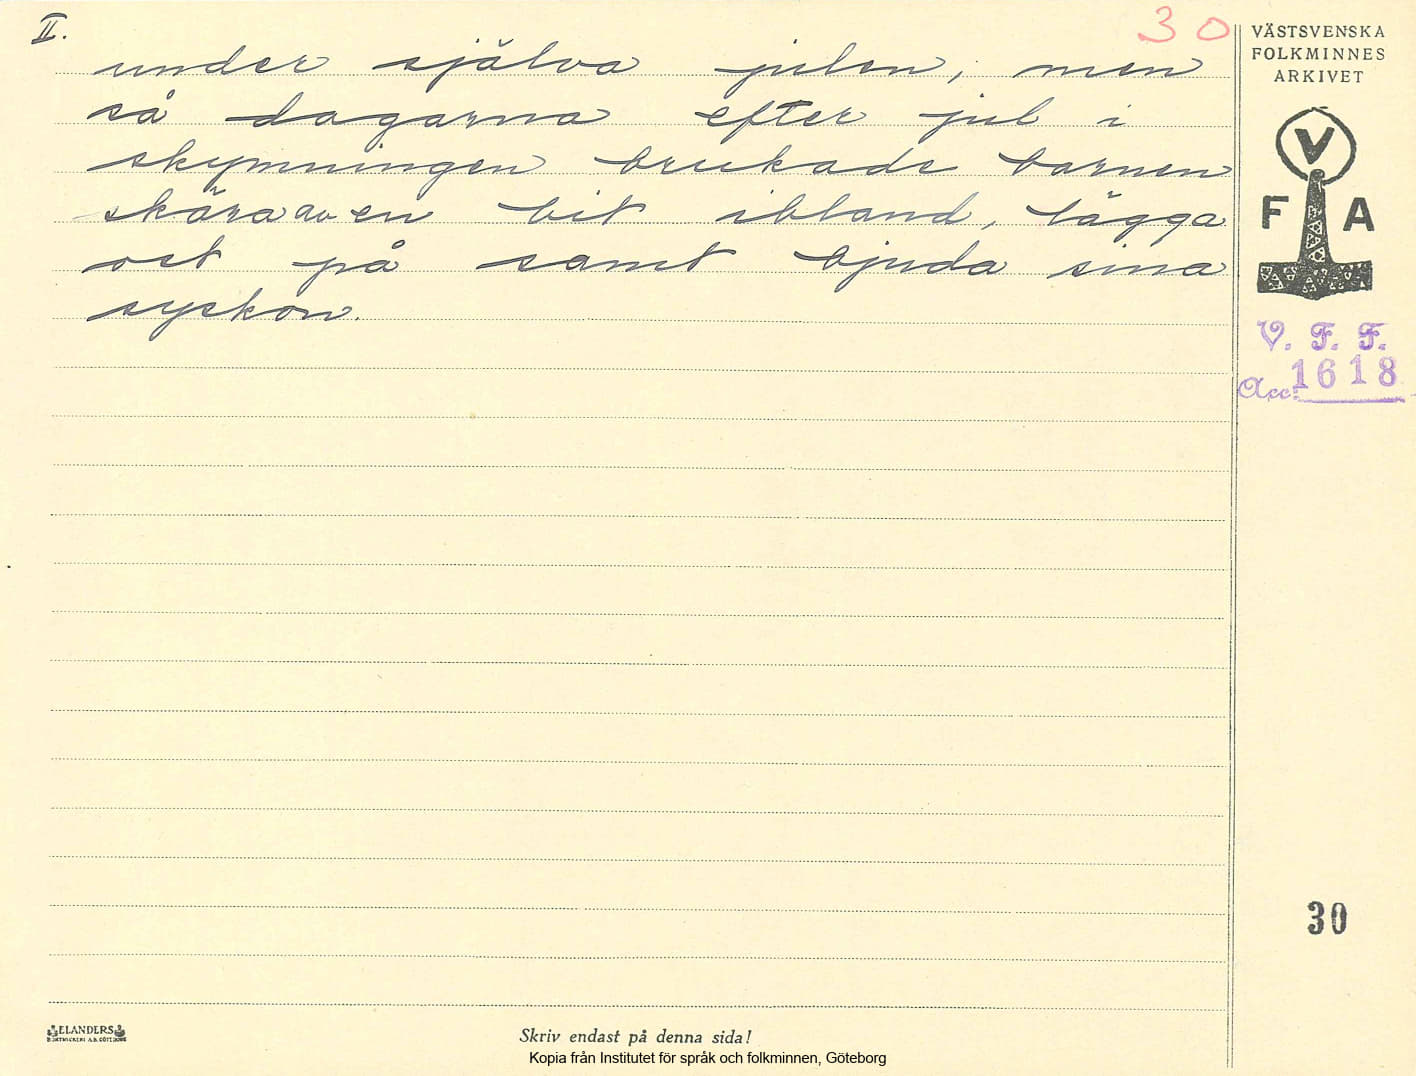 II.
30
under själva julen, men
så dagarna efter jul i
skymningen brukade barnen
skära av en bit ibland, lägga
ost på samt bjuda sina
syskon.
VÄSTSVENSKA
FOLKMINNES
ARKIVET
V
F A
V. F. F.
Acc: 1618
30
ELANDERS
BOKTRYCKERI A.B. GÖTEBORG
Skriv endast på denna sida!
Kopia från Institutet för språk och folkminnen, Göteborg